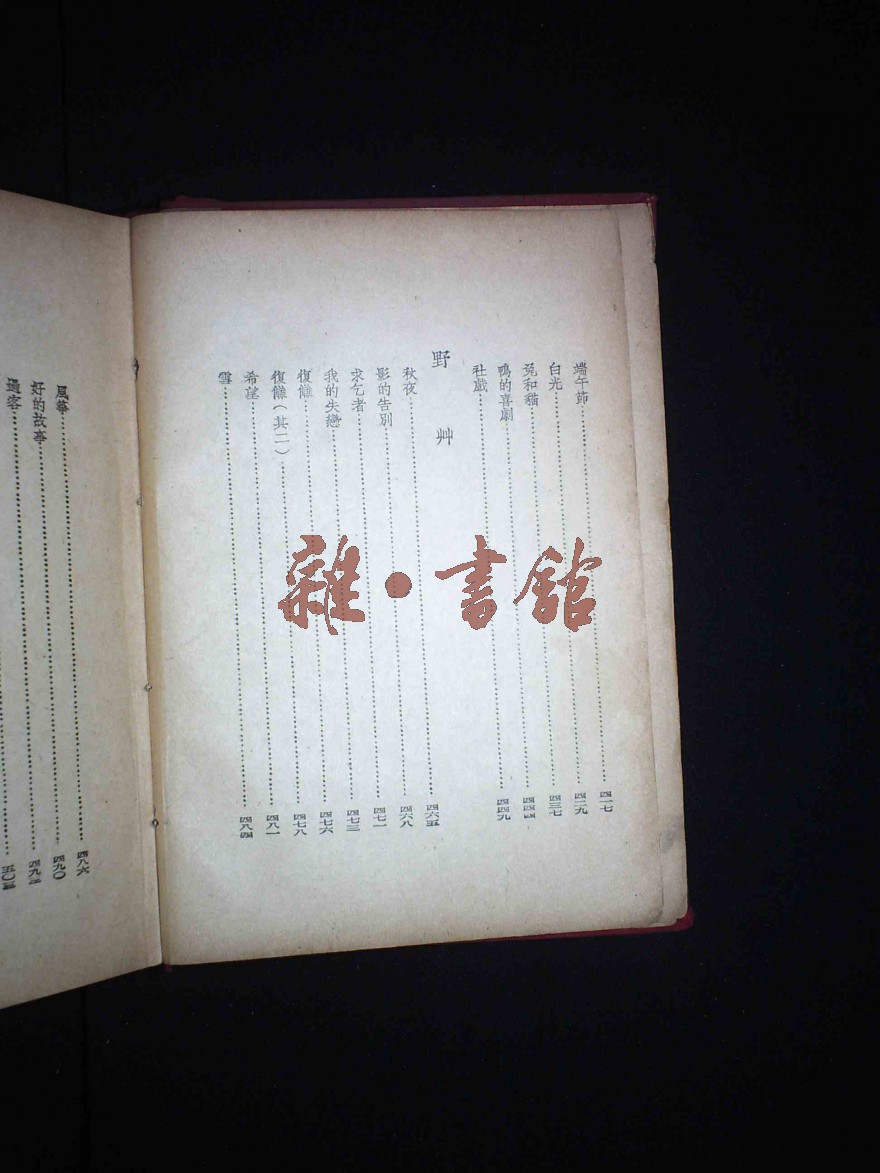 端午節……四一七
白光……四二九
兔和貓……四三七
鴨的喜劇……四四四
社戲……四四九
野艸
秋夜……四六五
影的告別……四六八
求乞者……四七一
我的失戀……四七三
復讎……四七六
復讎（其二）……四七八
希望……四八一
雪……四八四
風箏……四八六
好的故事……四九〇
過客……四九三
雜·書館